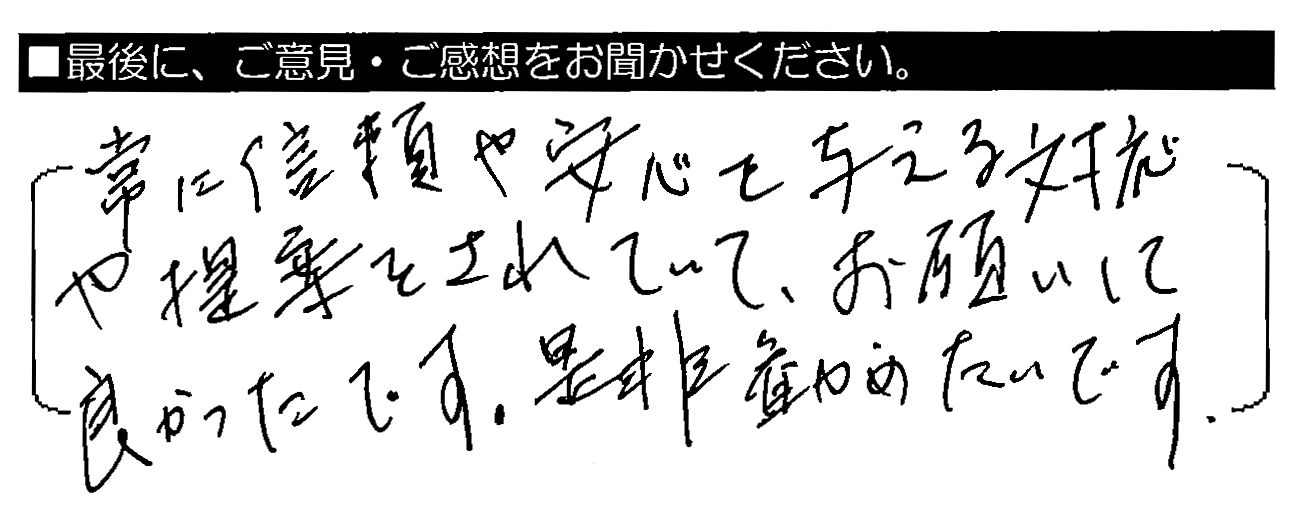 ■最後に、ご意見・ご感想をお聞かせください。
常に信頼や安心を与える対応
や提案をされていて、お願いして
良かったです。是非勧めたいです。